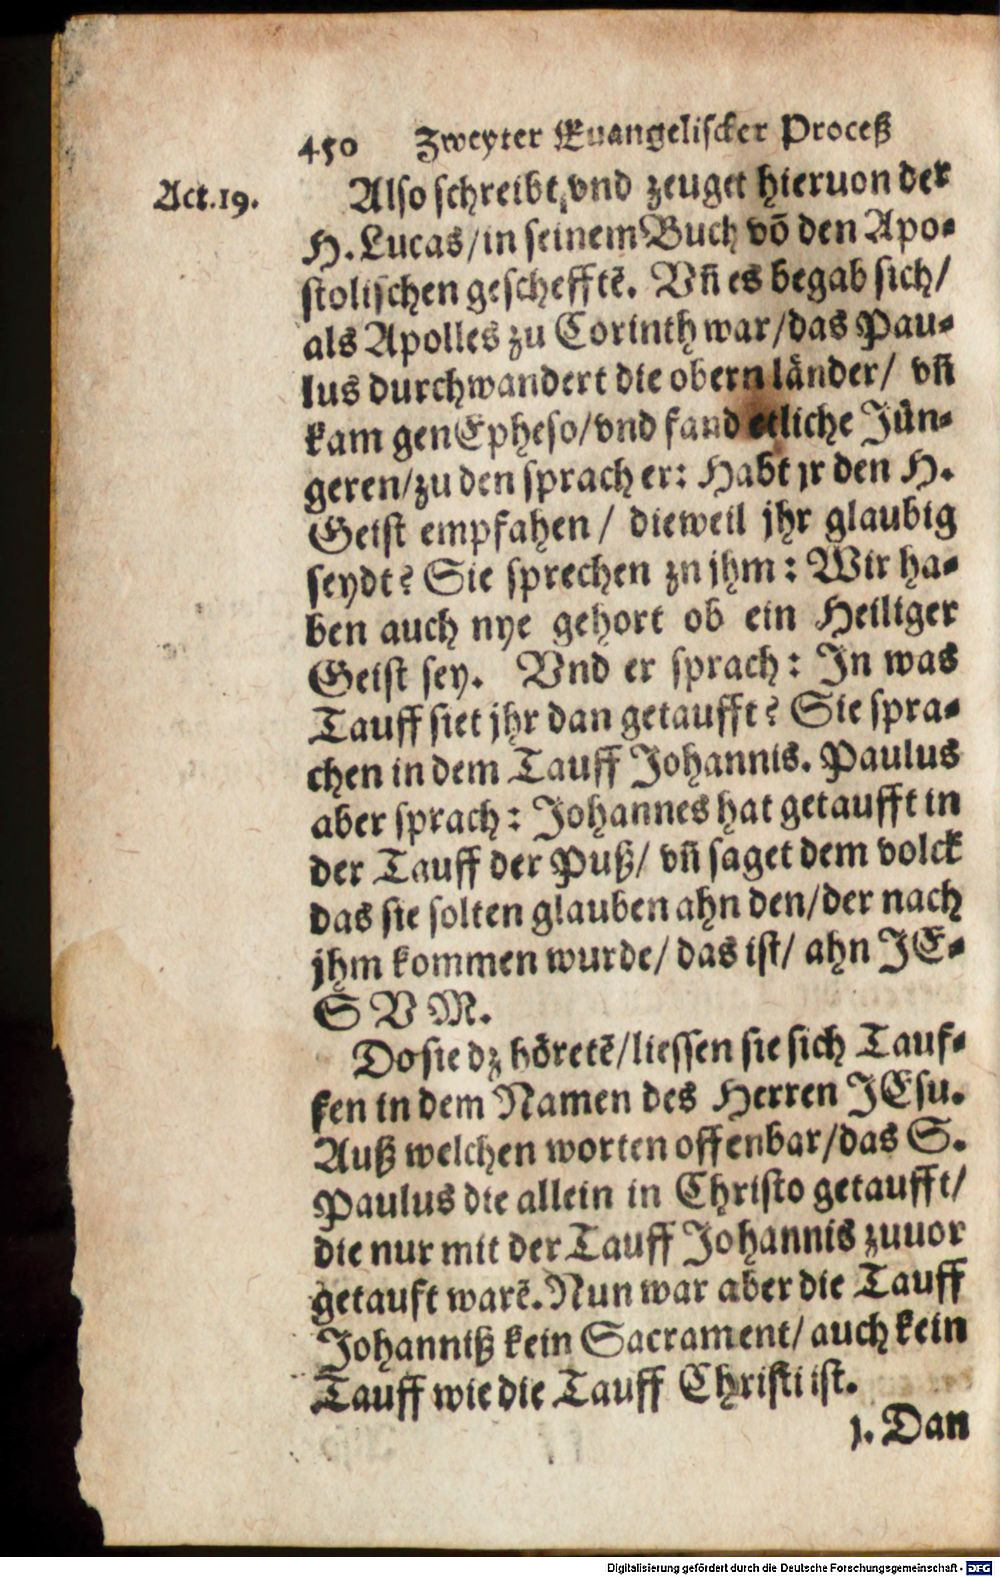 450 Zweyter Euangelischer Proceß
Act.19.
Also schreibt, vnd zeuget hieruon der
H. Lucas/ in seinem Buch võ den Apo-
stolischen geschefftẽ. Vñ es begab sich/
als Apolles zu Corinth war/ das Pau-
lus durchwandert die obern länder/ vñ
kam gen Epheso/ vnd fand etliche Jün-
geren/ zu den sprach er: Habt jr den H.
Geist empfahen/ dieweil jhr glaubig
seydt? Sie sprechen zn jhm: Wir ha-
ben auch nye gehort ob ein Heiliger
Geist sey. Vnd er sprach: In was
Tauff siet jhr dan getaufft? Sie spra-
chen in dem Tauff Johannis. Paulus
aber sprach: Johannes hat getaufft in
der Tauff der Puß/ vñ saget dem volck
das sie solten glauben ahn den/ der nach
jhm kommen wurde/ das ist/ ahn JE-
SVM.
Do sie dz höretẽ/ liessen sie sich Tauf-
fen in dem Namen des Herren JEsu.
Auß welchen worten offenbar/ das S.
Paulus die allein in Christo getaufft/
die nur mit der Tauff Johannis zuuor
getauft warẽ. Nun war aber die Tauff
Johanniß kein Sacrament/ auch kein
Tauff wie die Tauff Christi ist.
1. Dan
Digitalisierung gefördert durch die Deutsche Forschungsgemeinschaft - DFG